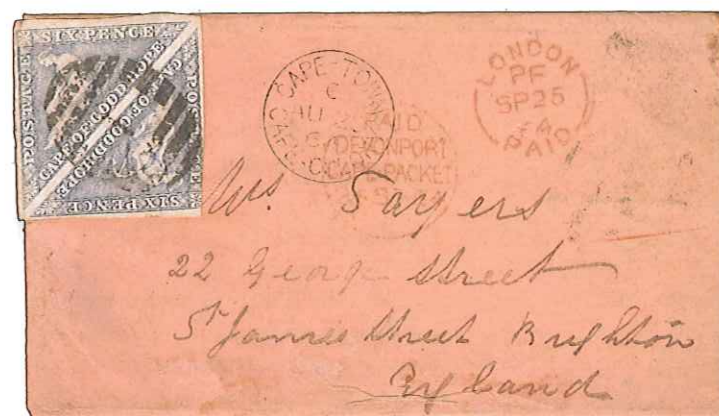 POSTAGE
SIX PENCE
CAPE OF GOOD HOPE
CAPE OF GOOD HOPE
SIX PENCE
POSTAGE
CAPE-TOWN
PAID
DEVONPORT
PACKET
LONDON
PF
SP 25
PAID
Mrs. Sayers
22 George Street
St James Street Brighton
England